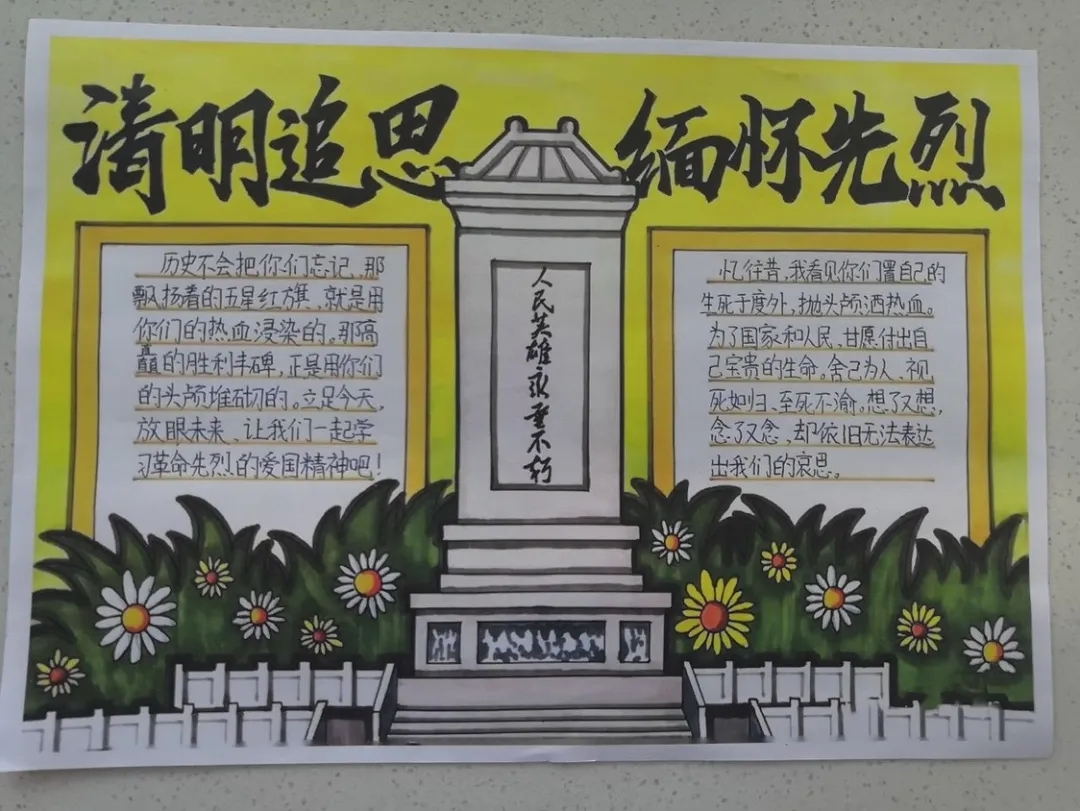 清明追思 缅怀先烈
历史不会把你们忘记、那
飘扬着的五星红旗、就是用
你们的热血浸染的。那高
矗的胜利丰碑，正是用你们
的头颅堆砌的。立足今天，
放眼未来、让我们一起学
习革命先烈的爱国精神吧！
人民英雄永垂不朽
忆往昔，我看见你们置自己的
生死于度外，抛头颅洒热血。
为了国家和人民，甘愿付出自
己宝贵的生命。舍己为人、视
死如归、至死不渝。想了又想，
念了又念，却依旧无法表达
出我们的哀思。